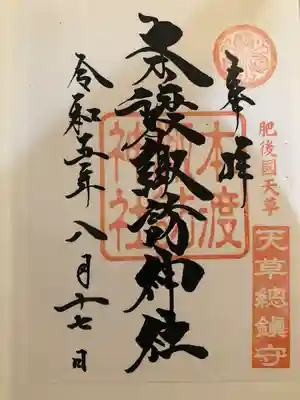 肥後國天草
天草總鎮守
奉拝
本渡諏訪神社
本渡
諏訪
神社
令和五年八月十七日